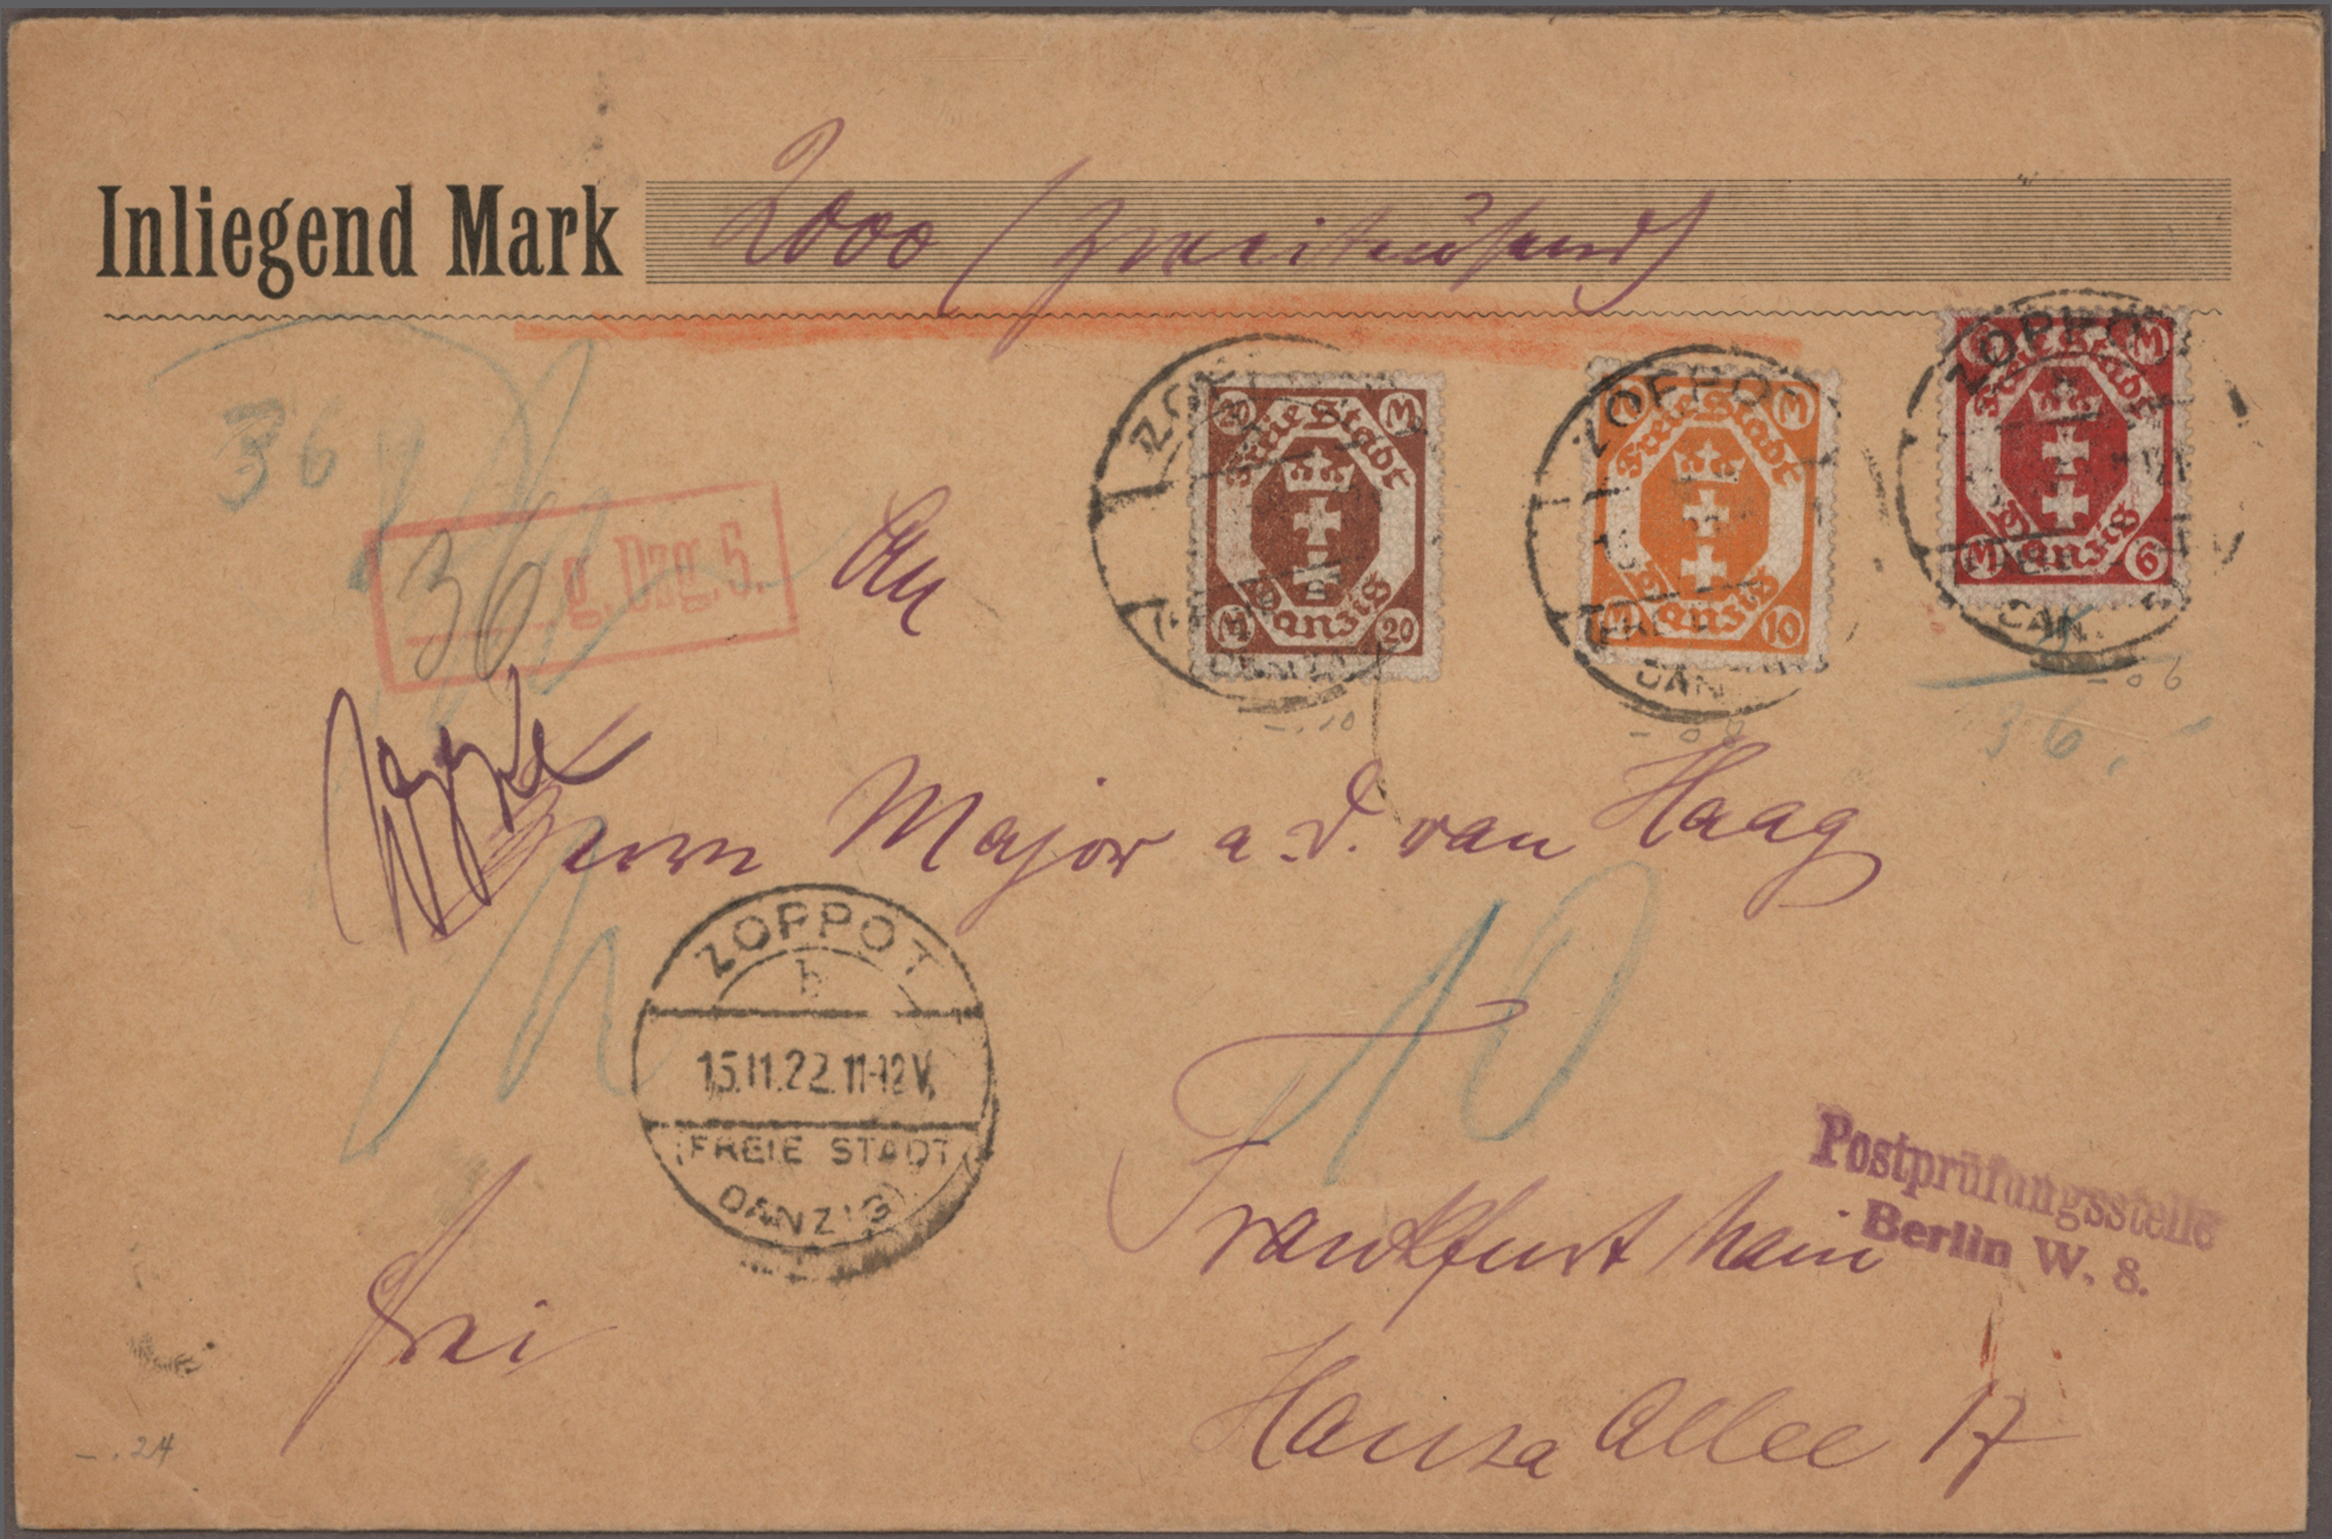 Inliegend Mark 2000 (zweitausend)
36
36 g. Dzg. 5.
An
20 M
Freie Stadt
Danzig
M 20
ZOPPOT
DANZIG
-.10
M M
Freie Stadt
Danzig
M 10
ZOPPOT
DAN
-.08
M
Freie Stadt
Danzig
M 6
ZOPPO
DAN.
-.06
36.
Herrn Major a.D. van Haag
ZOPPOT
b
15.11.22.11-12V.
(FREIE STADT
DANZIG)
10
Postprüfungsstelle
Berlin W. 8.
Frankfurt Main
frei
Hansa Allee 17
-.24